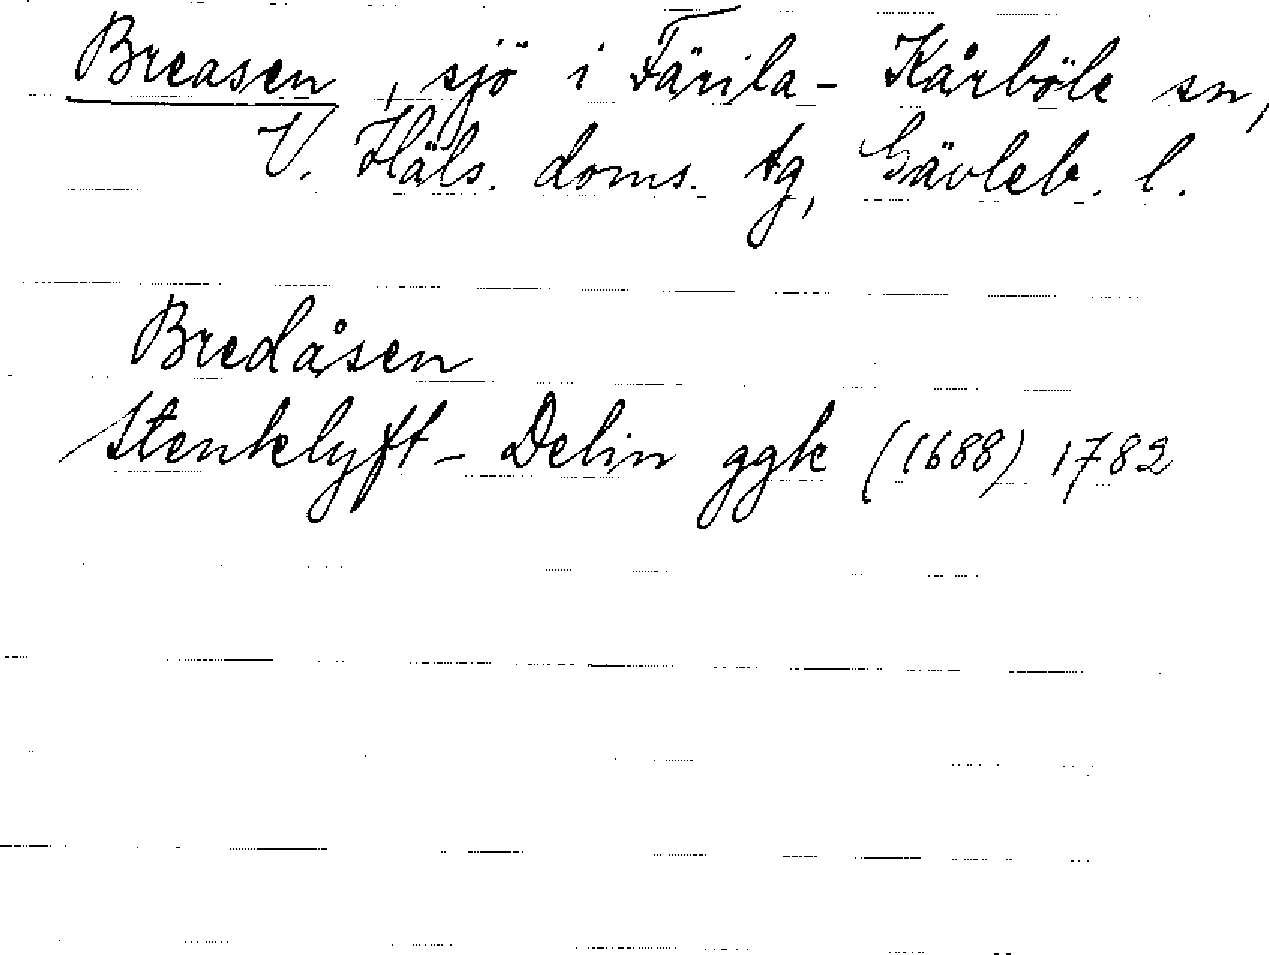 Breasen, sjö i Färila-Kårböle sn,
V. Häls. doms. tg, Gävleb. l.
Bredåsen
Stenklyft- Delin ggk (1688) 1782